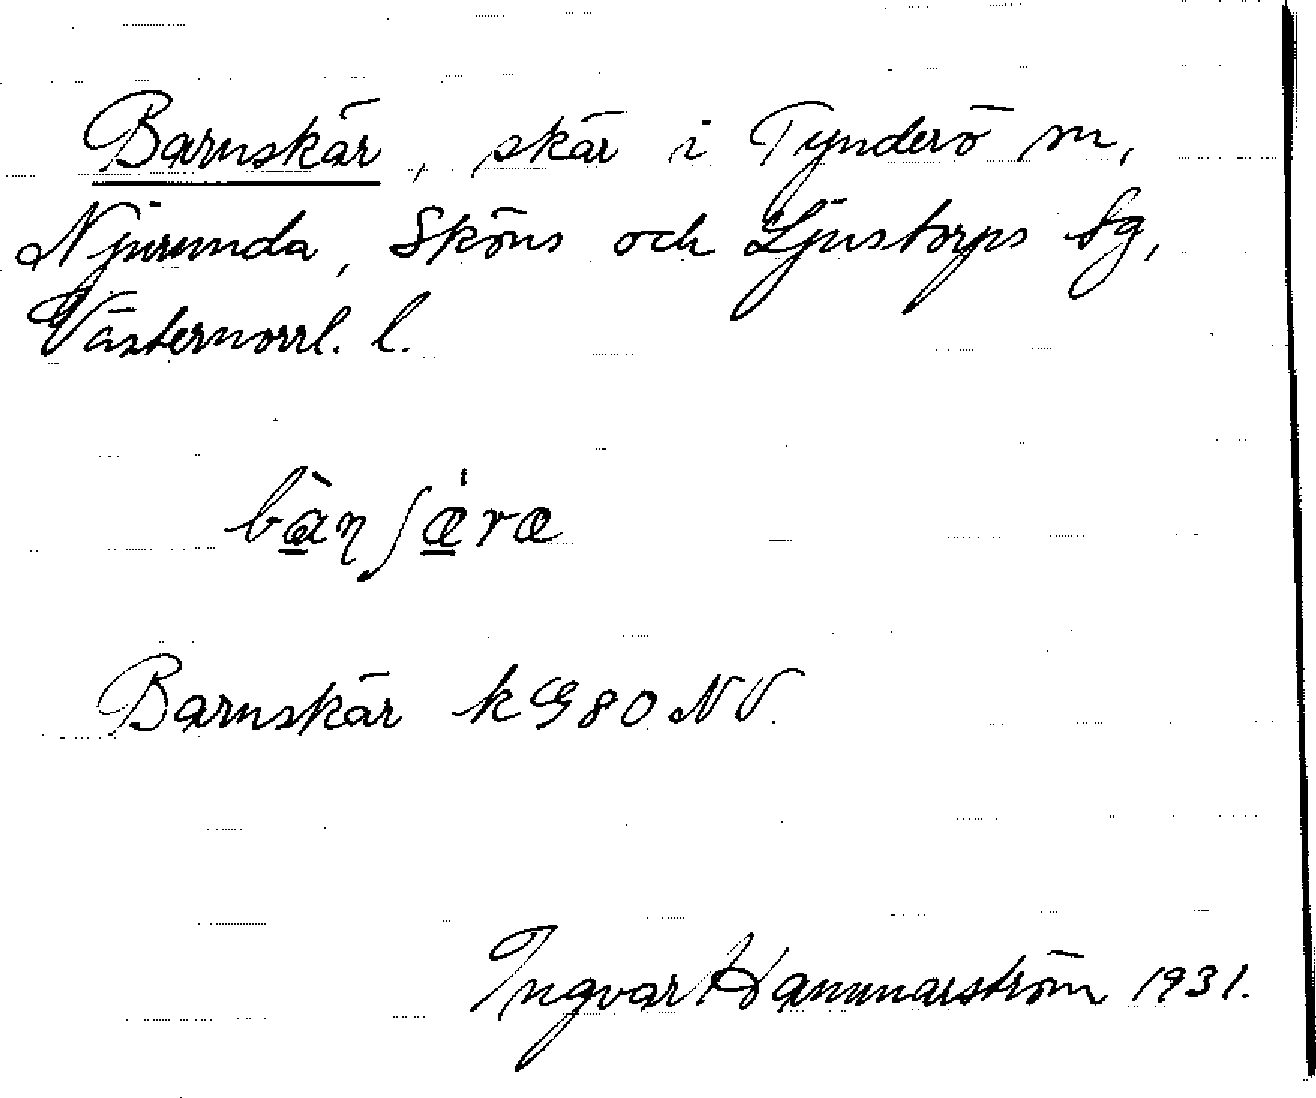 Barnskär, skär i Tynderö sn,
Njurunda, Sköns och Ljustorps tg,
Västernorrl. l.
bànʃæ̀ræ
Barnskär k G80 NV.
Ingvar Hammarström 1931.